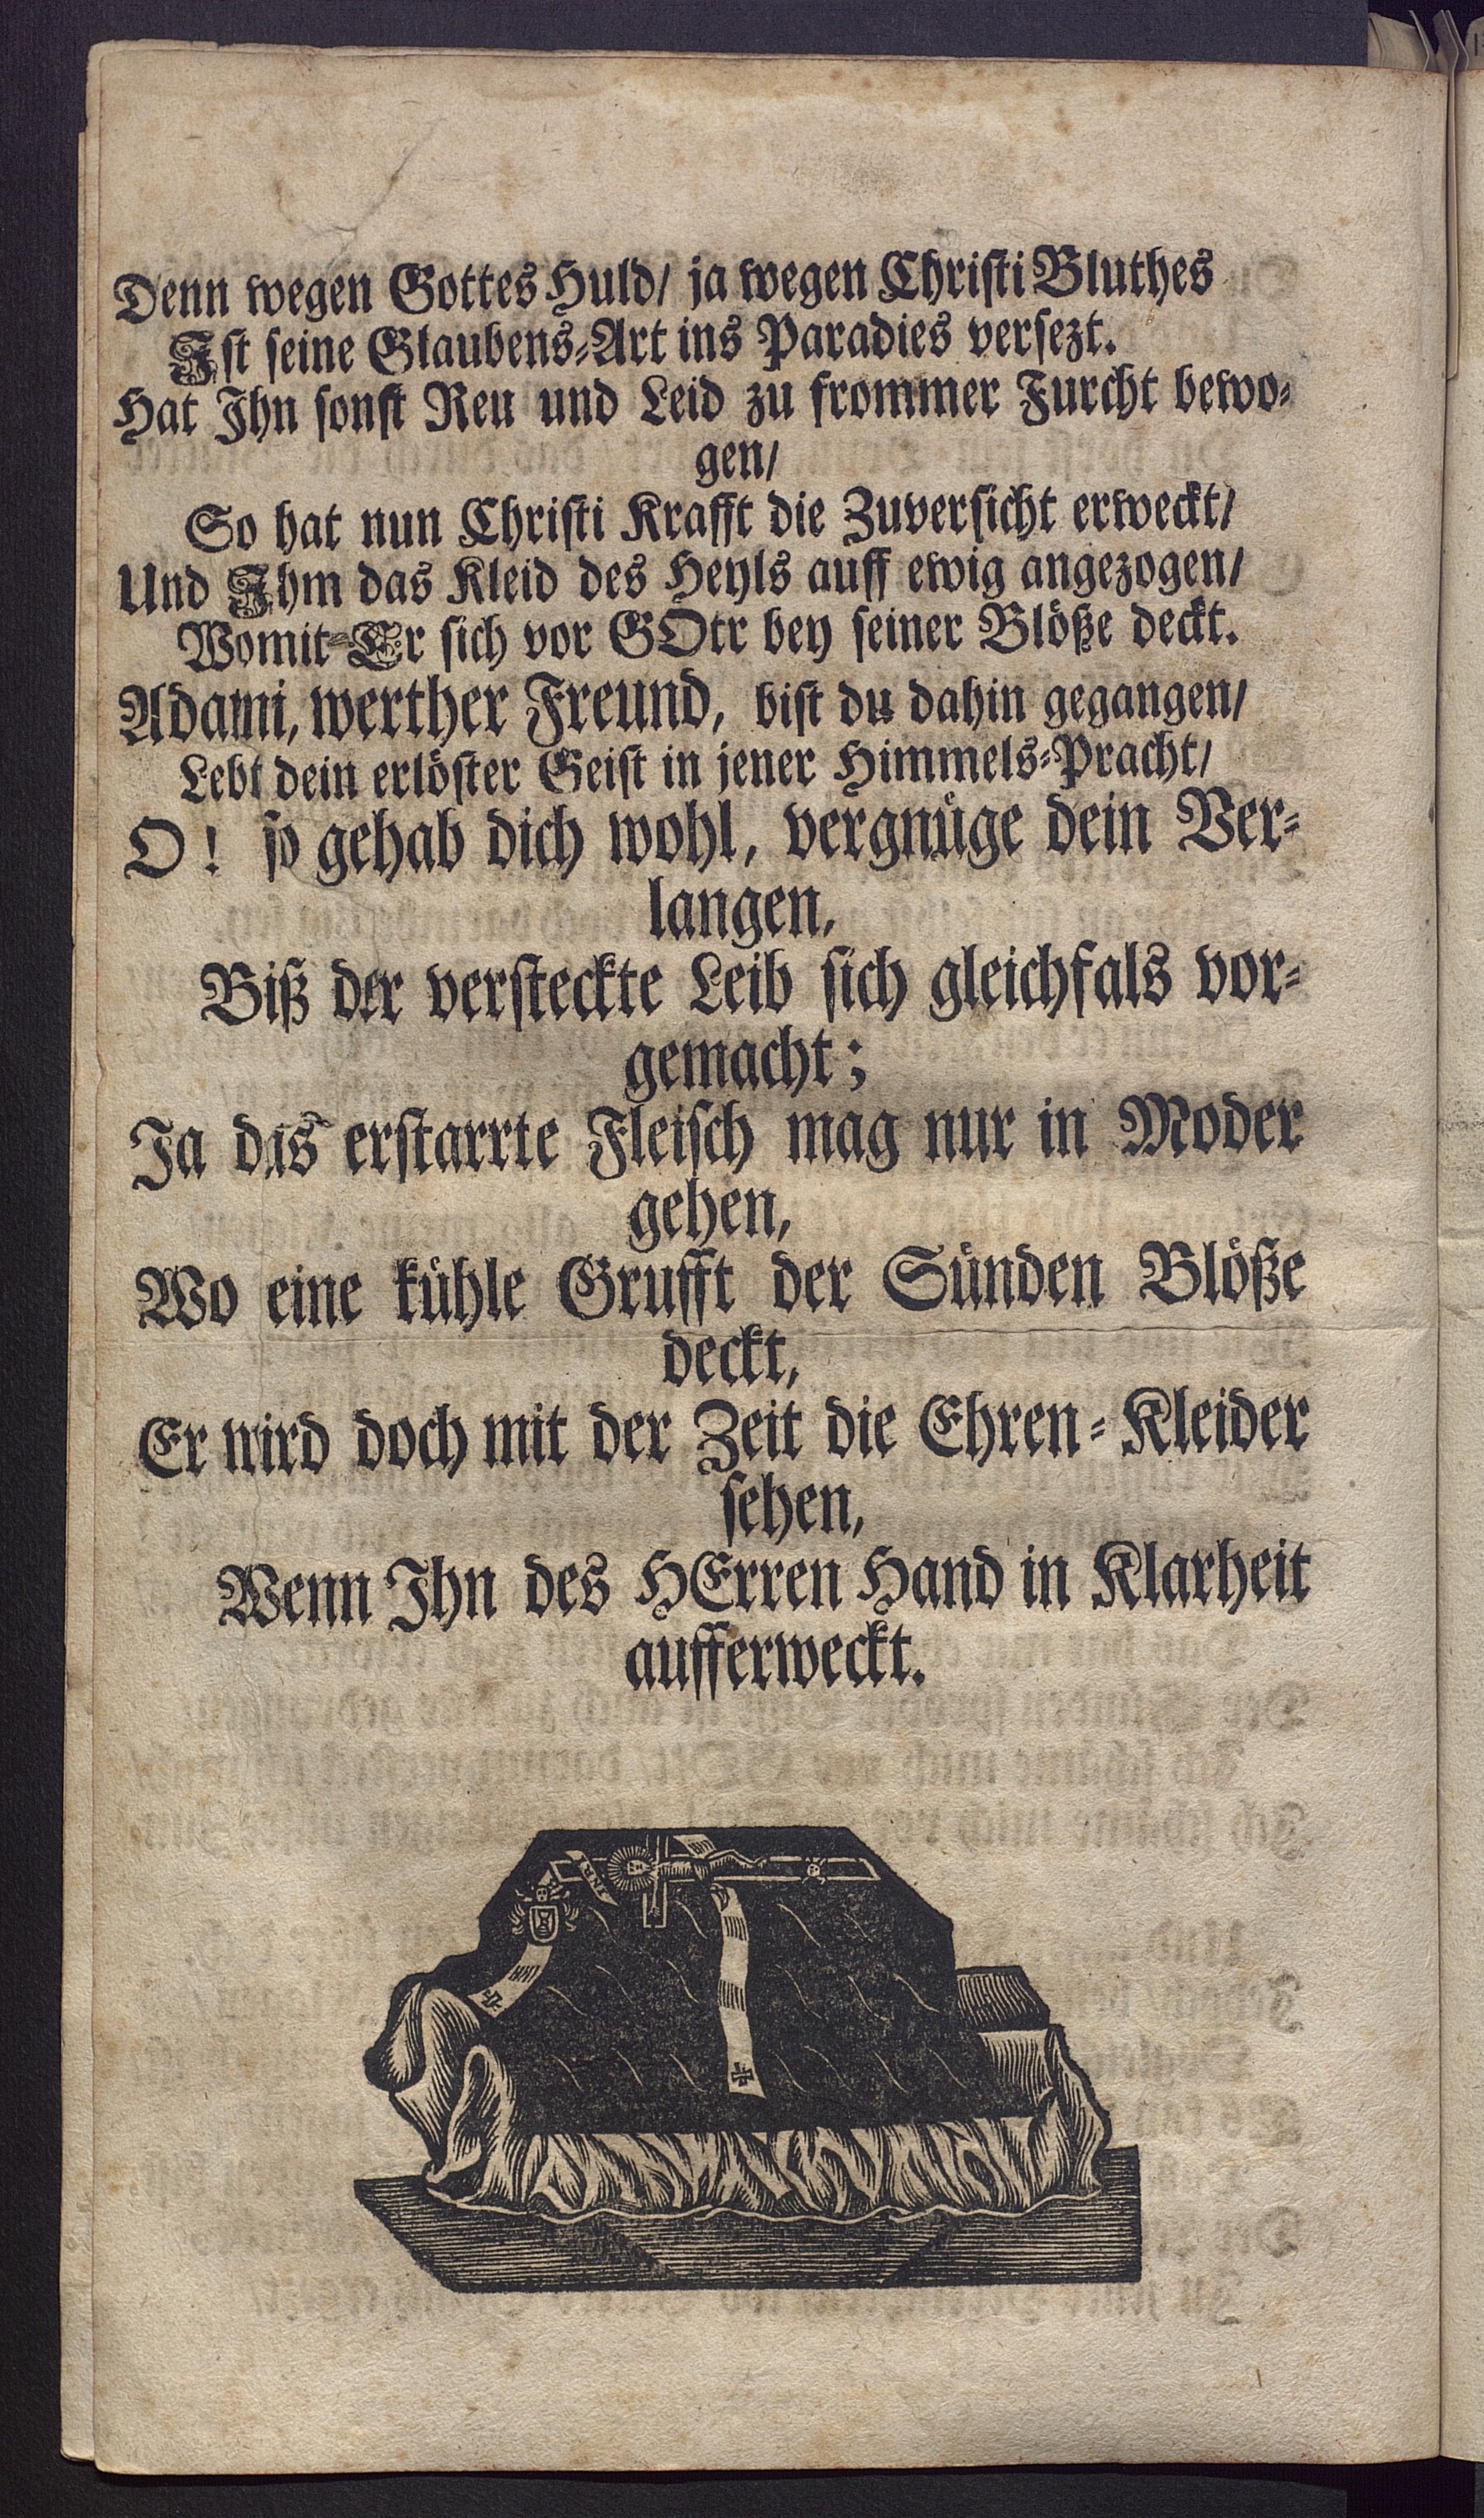 Denn wegen Gottes Huld/ ja wegen Christi Bluthes
Ist seine Glaubens-Art ins Paradies versezt.
Hat Ihn sonst Reu und Leid zu frommer Furcht bewo-
gen/
So hat nun Christi Krafft die Zuversicht erweckt/
Und Ihm das Kleid des Heyls auff ewig angezogen/
Womit-Er sich vor GOtt bey seiner Blöße deckt.
Adami, werther Freund, bist du dahin gegangen/
Lebt dein erlöster Geist in jener Himmels-Pracht/
O! so gehab dich wohl, vergnüge dein Ver-
langen,
Biß der versteckte Leib sich gleichfals vor-
gemacht;
Ja das erstarrte Fleisch mag nur in Moder
gehen,
Wo eine kühle Grufft der Sünden Blöße
deckt,
Er wird doch mit der Zeit die Ehren-Kleider
sehen,
Wenn Ihn des HErren Hand in Klarheit
aufferweckt.